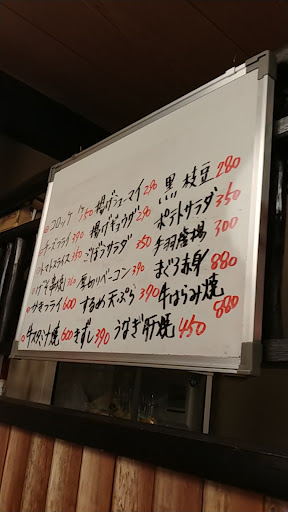 コロッケ 150 揚げシューマイ 290 黒枝豆 280
チーズフライ 390 揚げギョウザ 290 ポテトサラダ 350
トマトスライス 350 ごぼうサラダ 350 牛羽唐揚 300
げそ串焼 厚切りベーコン 390 まぐろ赤身 880
カキフライ 600 するめ天ぷら 390 牛はらみ焼 880
牛スタミナ焼 600 きずし 390 うなぎ肝焼 450